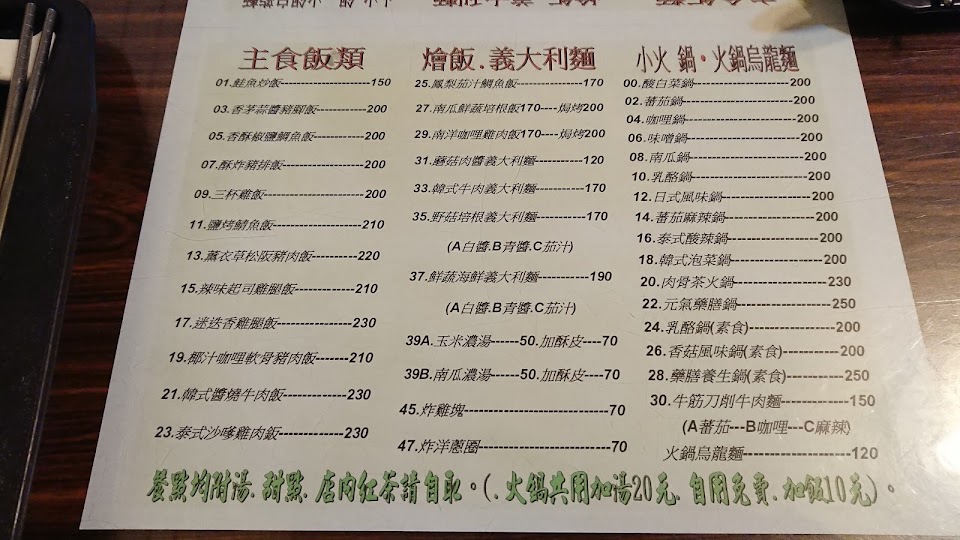 主食飯類
01.鮭魚炒飯----------------150
03.香茅蒜醬豬腳飯----------200
05.香酥椒鹽鯛魚飯----------200
07.酥炸豬排飯----------------200
09.三杯雞飯--------------------200
11.鹽烤鯖魚飯----------------210
13.薰衣草松阪豬肉飯---------220
15.辣味起司雞腿飯-----------210
17.迷迭香雞腿飯---------------230
19.椰汁咖哩軟骨豬肉飯------210
21.韓式醬燒牛肉飯------------230
23.泰式沙嗲雞肉飯-------------230
燴飯.義大利麵
25.鳳梨茄汁鯛魚飯-----------170
27.南瓜鮮蔬培根飯170----焗烤200
29.南洋咖哩雞肉飯170----焗烤200
31.蘑菇肉醬義大利麵----------120
33.韓式牛肉義大利麵----------170
35.野菇培根義大利麵----------170
(A白醬.B青醬.C茄汁)
37.鮮蔬海鮮義大利麵----------190
(A白醬.B青醬.C茄汁)
39A.玉米濃湯------50.加酥皮----70
39B.南瓜濃湯------50.加酥皮----70
45.炸雞塊-----------------------------70
47.炸洋蔥圈--------------------------70
小火 鍋‧火鍋烏龍麵
00.酸白菜鍋--------------------200
02.蕃茄鍋----------------------200
04.咖哩鍋------------------------200
06.味噌鍋------------------------200
08.南瓜鍋-----------------------200
10.乳酪鍋------------------------200
12.日式風味鍋------------------200
14.蕃茄麻辣鍋------------------200
16.泰式酸辣鍋------------------200
18.韓式泡菜鍋------------------200
20.肉骨茶火鍋-------------------230
22.元氣藥膳鍋-------------------250
24.乳酪鍋(素食)-----------------200
26.香菇風味鍋(素食)-----------200
28.藥膳養生鍋(素食)-----------250
30.牛筋刀削牛肉麵-------------150
(A蕃茄---B咖哩---C麻辣)
火鍋烏龍麵---------------------120
餐點均附湯.甜點.店內紅茶請自取。(.火鍋共用加湯20元.自用免費.加飯10元)。